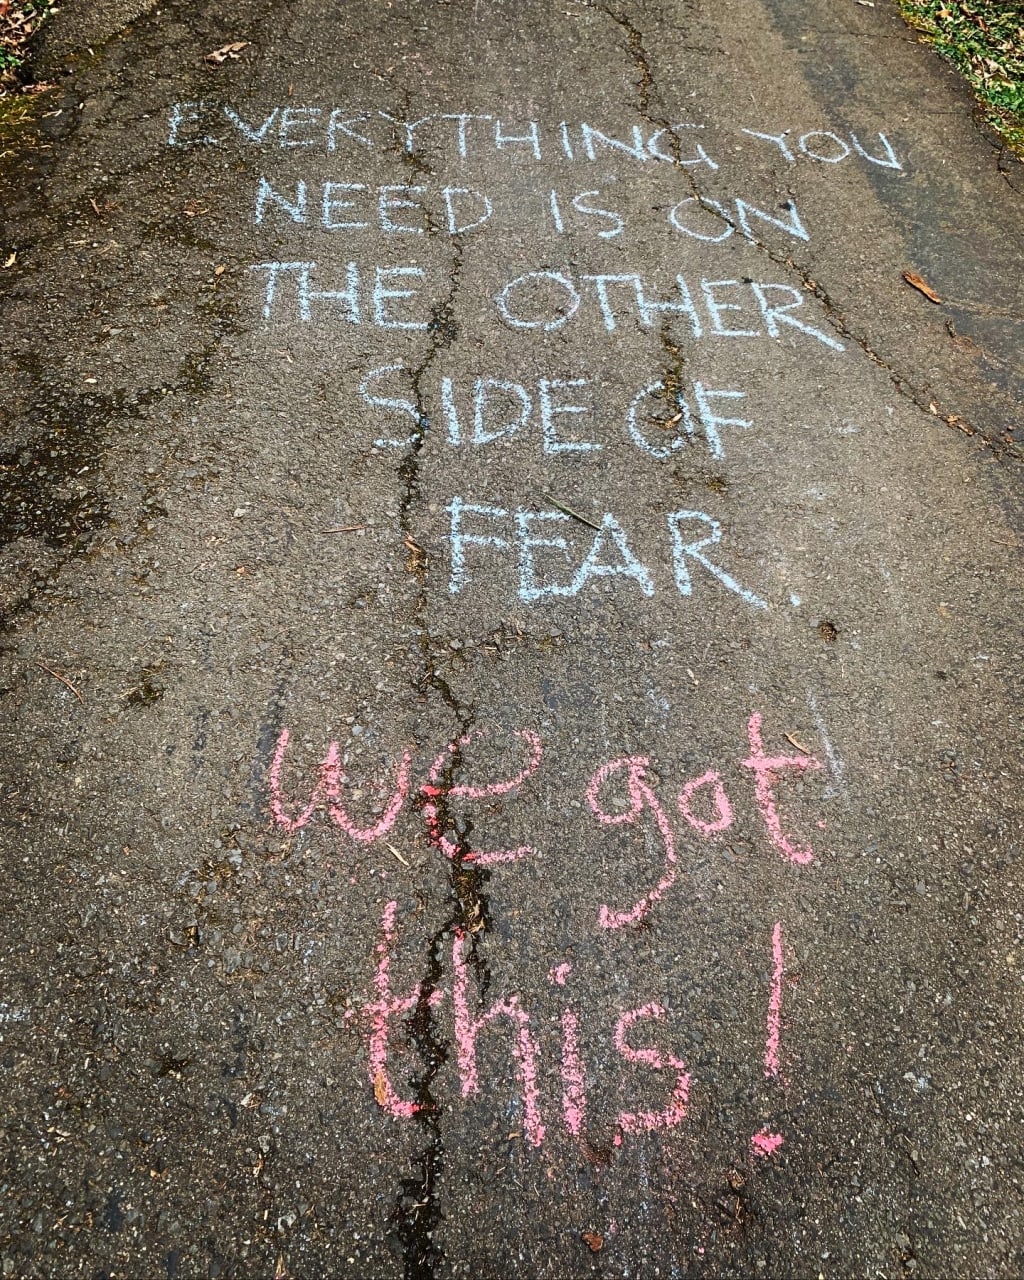 EVERYTHING YOU
NEED IS ON
THE OTHER
SIDE OF
FEAR.
we got
this!